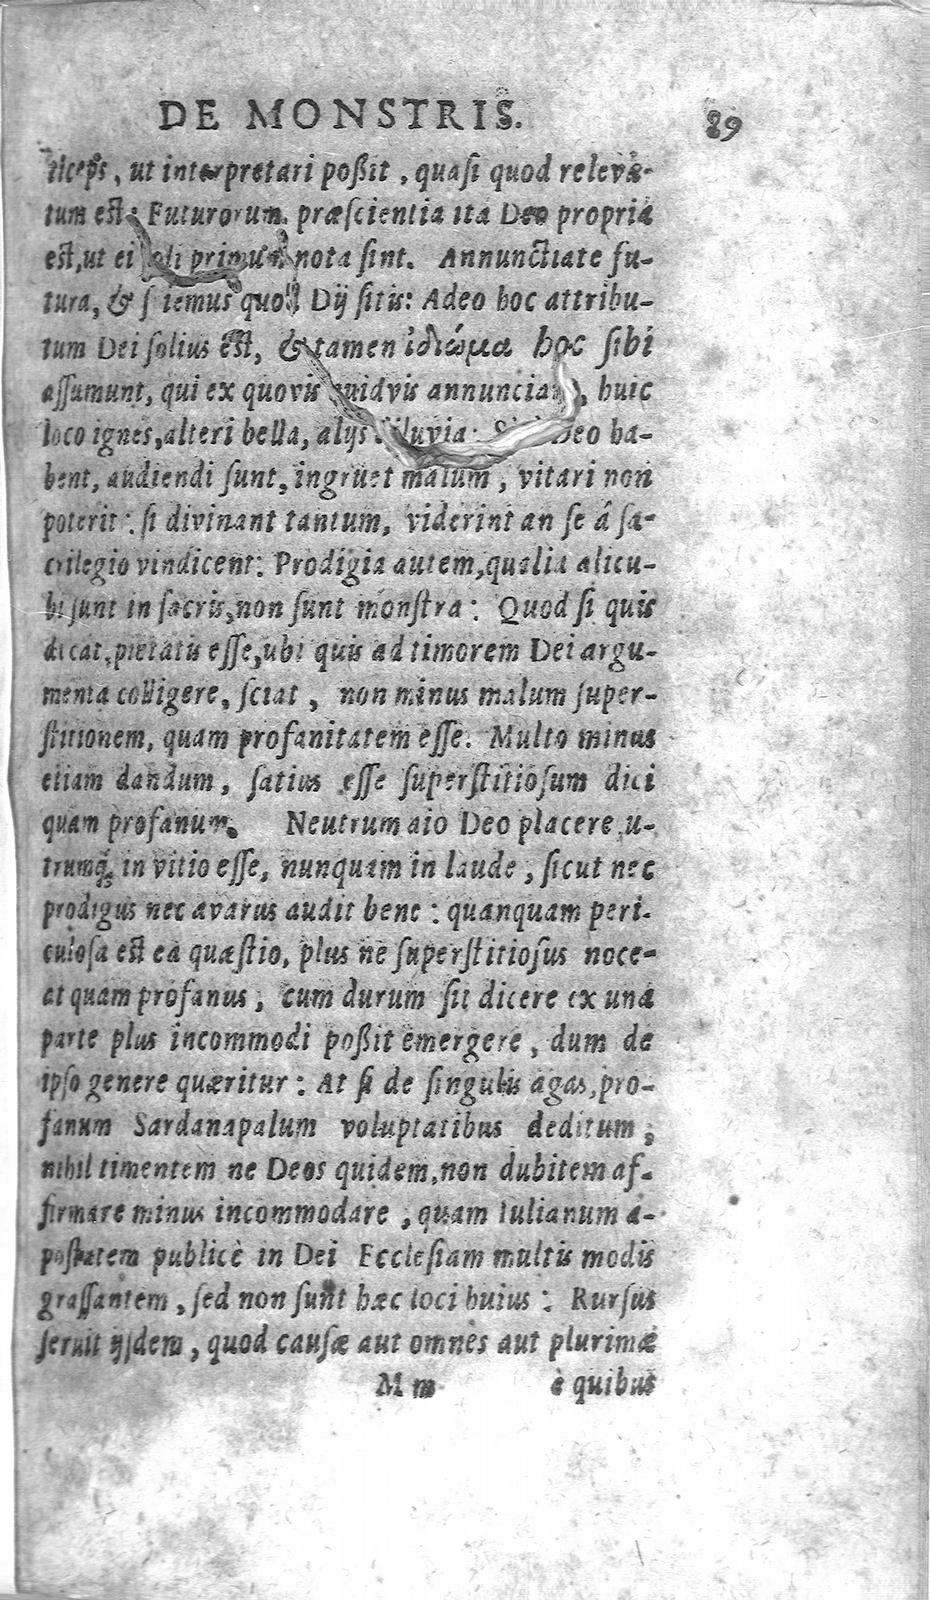 DE MONSTRIS. 89
ticeps, ut interpretari poßit, quasi quod relevā-
tum est: Futurorum præscientia ita Deo propria
est, ut ei soli primum nota sint. Annunctiate fu-
tura, & sciemus quod Dij sitis: Adeo hoc attribu-
tum Dei solius est, & tamen ἰδιώμα hoc sibi
assumunt, qui ex quovis quidvis annunciant, huic
loco ignes, alteri bella, alijs diluvia: Deo ha-
bent, audiendi sunt, ingruet malum, vitari non
poterit: si divinant tantum, viderint an se â sa-
crilegio vindicent: Prodigia autem, qualia alicu-
bi sunt in sacris, non sunt monstra: Quod si quis
dicat, pietatis esse, ubi quis ad timorem Dei argu-
menta colligere, sciat, non minus malum super-
stitionem, quam profanitatem esse. Multo minus
etiam dandum, satius esse superstitiosum dici
quam profanum. Neutrum aio Deo placere, u-
trumq́; in vitio esse, nunquam in laude, sicut nec
prodigus nec avarus audit bene: quanquam peri-
culosa est ea quæstio, plus ne superstitiosus noce-
at quam profanus, cum durum sit dicere ex unâ
parte plus incommodi poßit emergere, dum de
ipso genere quæritur: At si de singulis agas, pro-
fanum Sardanapalum voluptatibus deditum,
nihil timentem ne Deos quidem, non dubitem af-
firmare minus incommodare, quam Iulianum a-
postatem publicè in Dei Ecclesiam multis modis
grassantem, sed non sunt hæc loci huius: Rursus
seruit ijsdem, quod causæ aut omnes aut plurimæ
M m è quibus